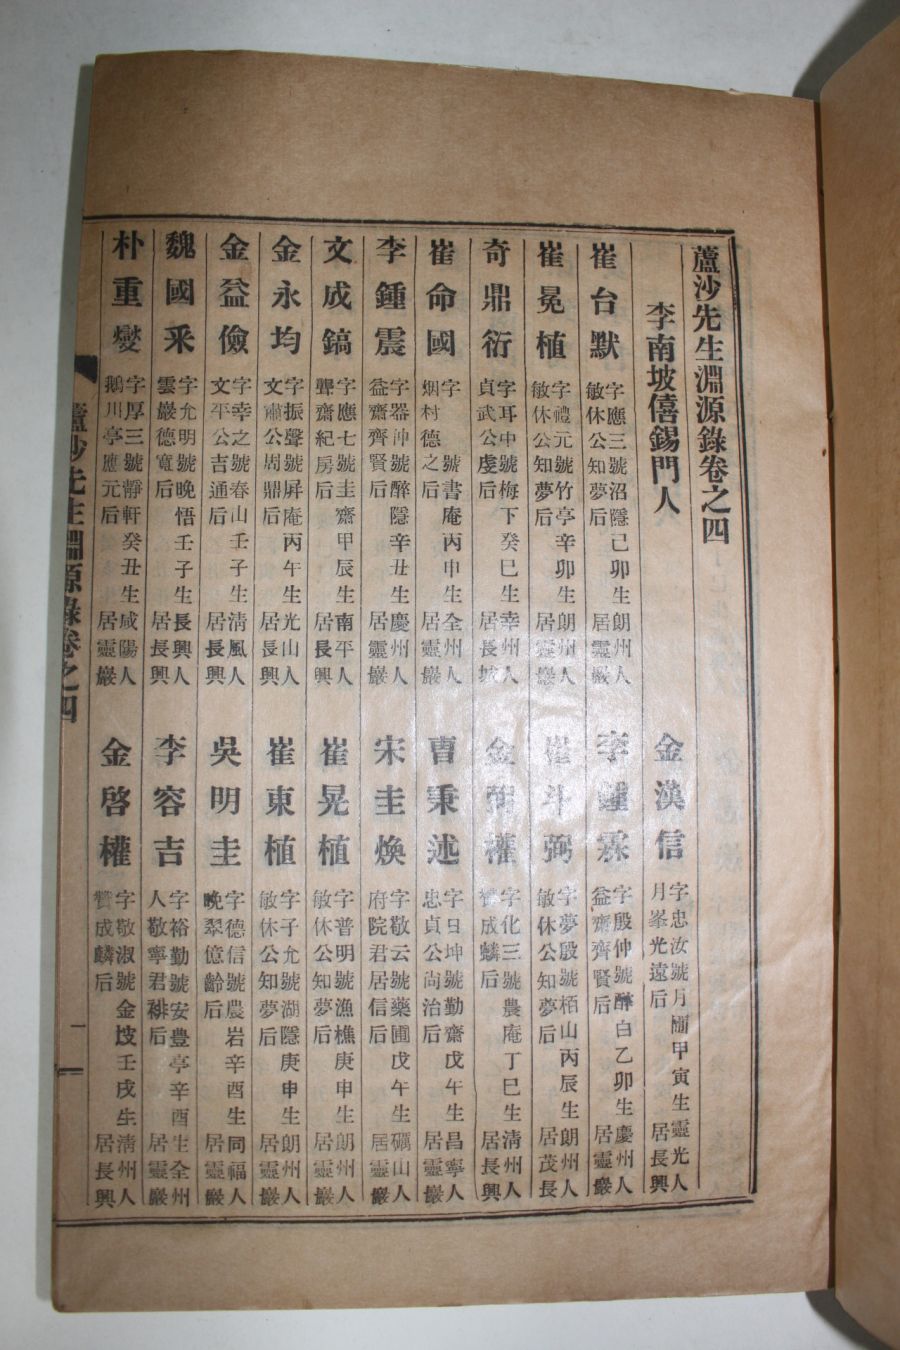 蘆沙先生淵源錄卷之四
李南坡僖錫門人
金漢信 字忠汝號月 甲寅生靈光人
月峯光遠后 居長興
崔台默 字應三號沼隱己卯生朗州人
敏休公知夢后 居靈巖
李鍾霖 字殷仲號醉白乙卯生慶州人
益齋齊賢后 居靈巖
崔冕植 字禮元號竹亭辛卯生朗州人
敏休公知夢后 居靈巖
崔斗弼 字夢殷號栢山丙辰生朗州人
敏休公知夢后 居茂長
奇鼎衍 字耳中號梅下癸巳生幸州人
貞武公虔后 居長城
金 權 字化三號農庵丁巳生清州人
贊成麟后 居長興
崔命國 字 號書庵丙申生全州人
烟村德之后 居靈巖
曺秉述 字日坤號勤齋戊午生昌寧人
忠貞公尙治后 居靈巖
李鍾震 字器沖號醉隱辛丑生慶州人
益齋齊賢后 居靈巖
宋圭煥 字敬云號藥圃戊午生礪山人
府院君居信后 居靈巖
文成鎬 字應七號圭齋甲辰生南平人
聾齋紀房后 居長興
崔晃植 字普明號漁樵庚申生朗州人
敏休公知夢后 居靈巖
金永均 字振聲號屛庵丙午生光山人
文肅公周鼎后 居長興
崔東植 字子允號湖隱庚申生朗州人
敏休公知夢后 居靈巖
金益儉 字幸之號春山壬子生清風人
文平公吉通后 居長興
吳明圭 字德信號農岩辛酉生同福人
晚翠億齡后 居靈巖
魏國釆 字允明號晚悟壬子生長興人
雲巖德寬后 居長興
李容吉 字裕勤號安豊亭辛酉生全州
人敬寧君裶后 居靈巖
朴重燮 字厚三號靜軒癸丑生咸陽人
鵝川亭應元后 居靈巖
金啓權 字敬淑號金坡壬戌生清州人
贊成麟后 居長興
蘆沙先生淵源錄卷之四
一